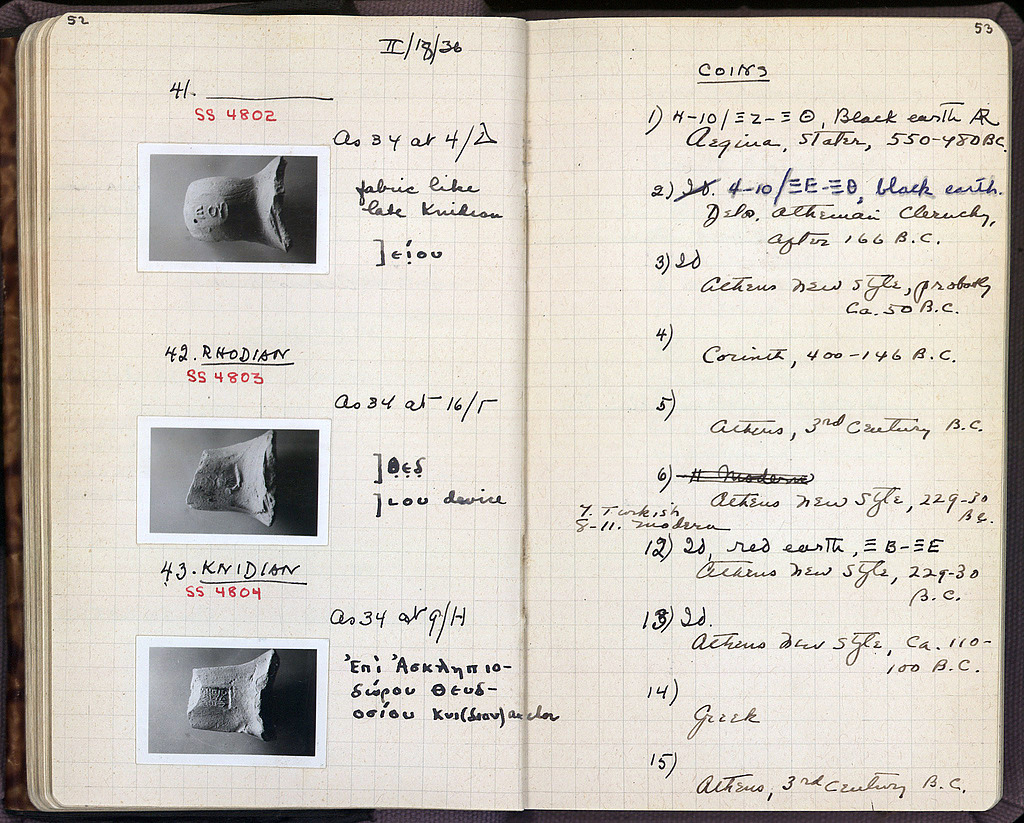 52
II/18/36
41.
SS 4802
As 34 at 4/Δ
fabric like
late Knidian
]είου
42. RHODIAN
SS 4803
As 34 at 16/Γ
]θεδ
]ιου device
43. KNIDIAN
SS 4804
As 34 at 9/H
Ἐπὶ Ἀσκληπιο-
δώρου Θευδ-
οσίου Κνι(δίων) anchor
53
COINS
1) 4-10/ΞZ-ΞΘ, Black earth AR
Aegina, Stater, 550-480 BC.
2) Id. 4-10/ΞE-ΞΘ, black earth.
Delos, Athenian Cleruchy,
after 166 B.C.
3) Id
Athens New Style, probably
Ca. 50 B.C.
4)
Corinth, 400-146 B.C.
5)
Athens, 3rd Century B.C.
6) Moderna
Athens New Style, 229-30
B.C.
7. Turkish
8-11. Modern
12) Id, red earth, ΞB-ΞE
Athens New Style, 229-30
B.C.
13) Id.
Athens New Style, Ca. 110-
100 B.C.
14)
Greek
15)
Athens, 3rd Century B.C.